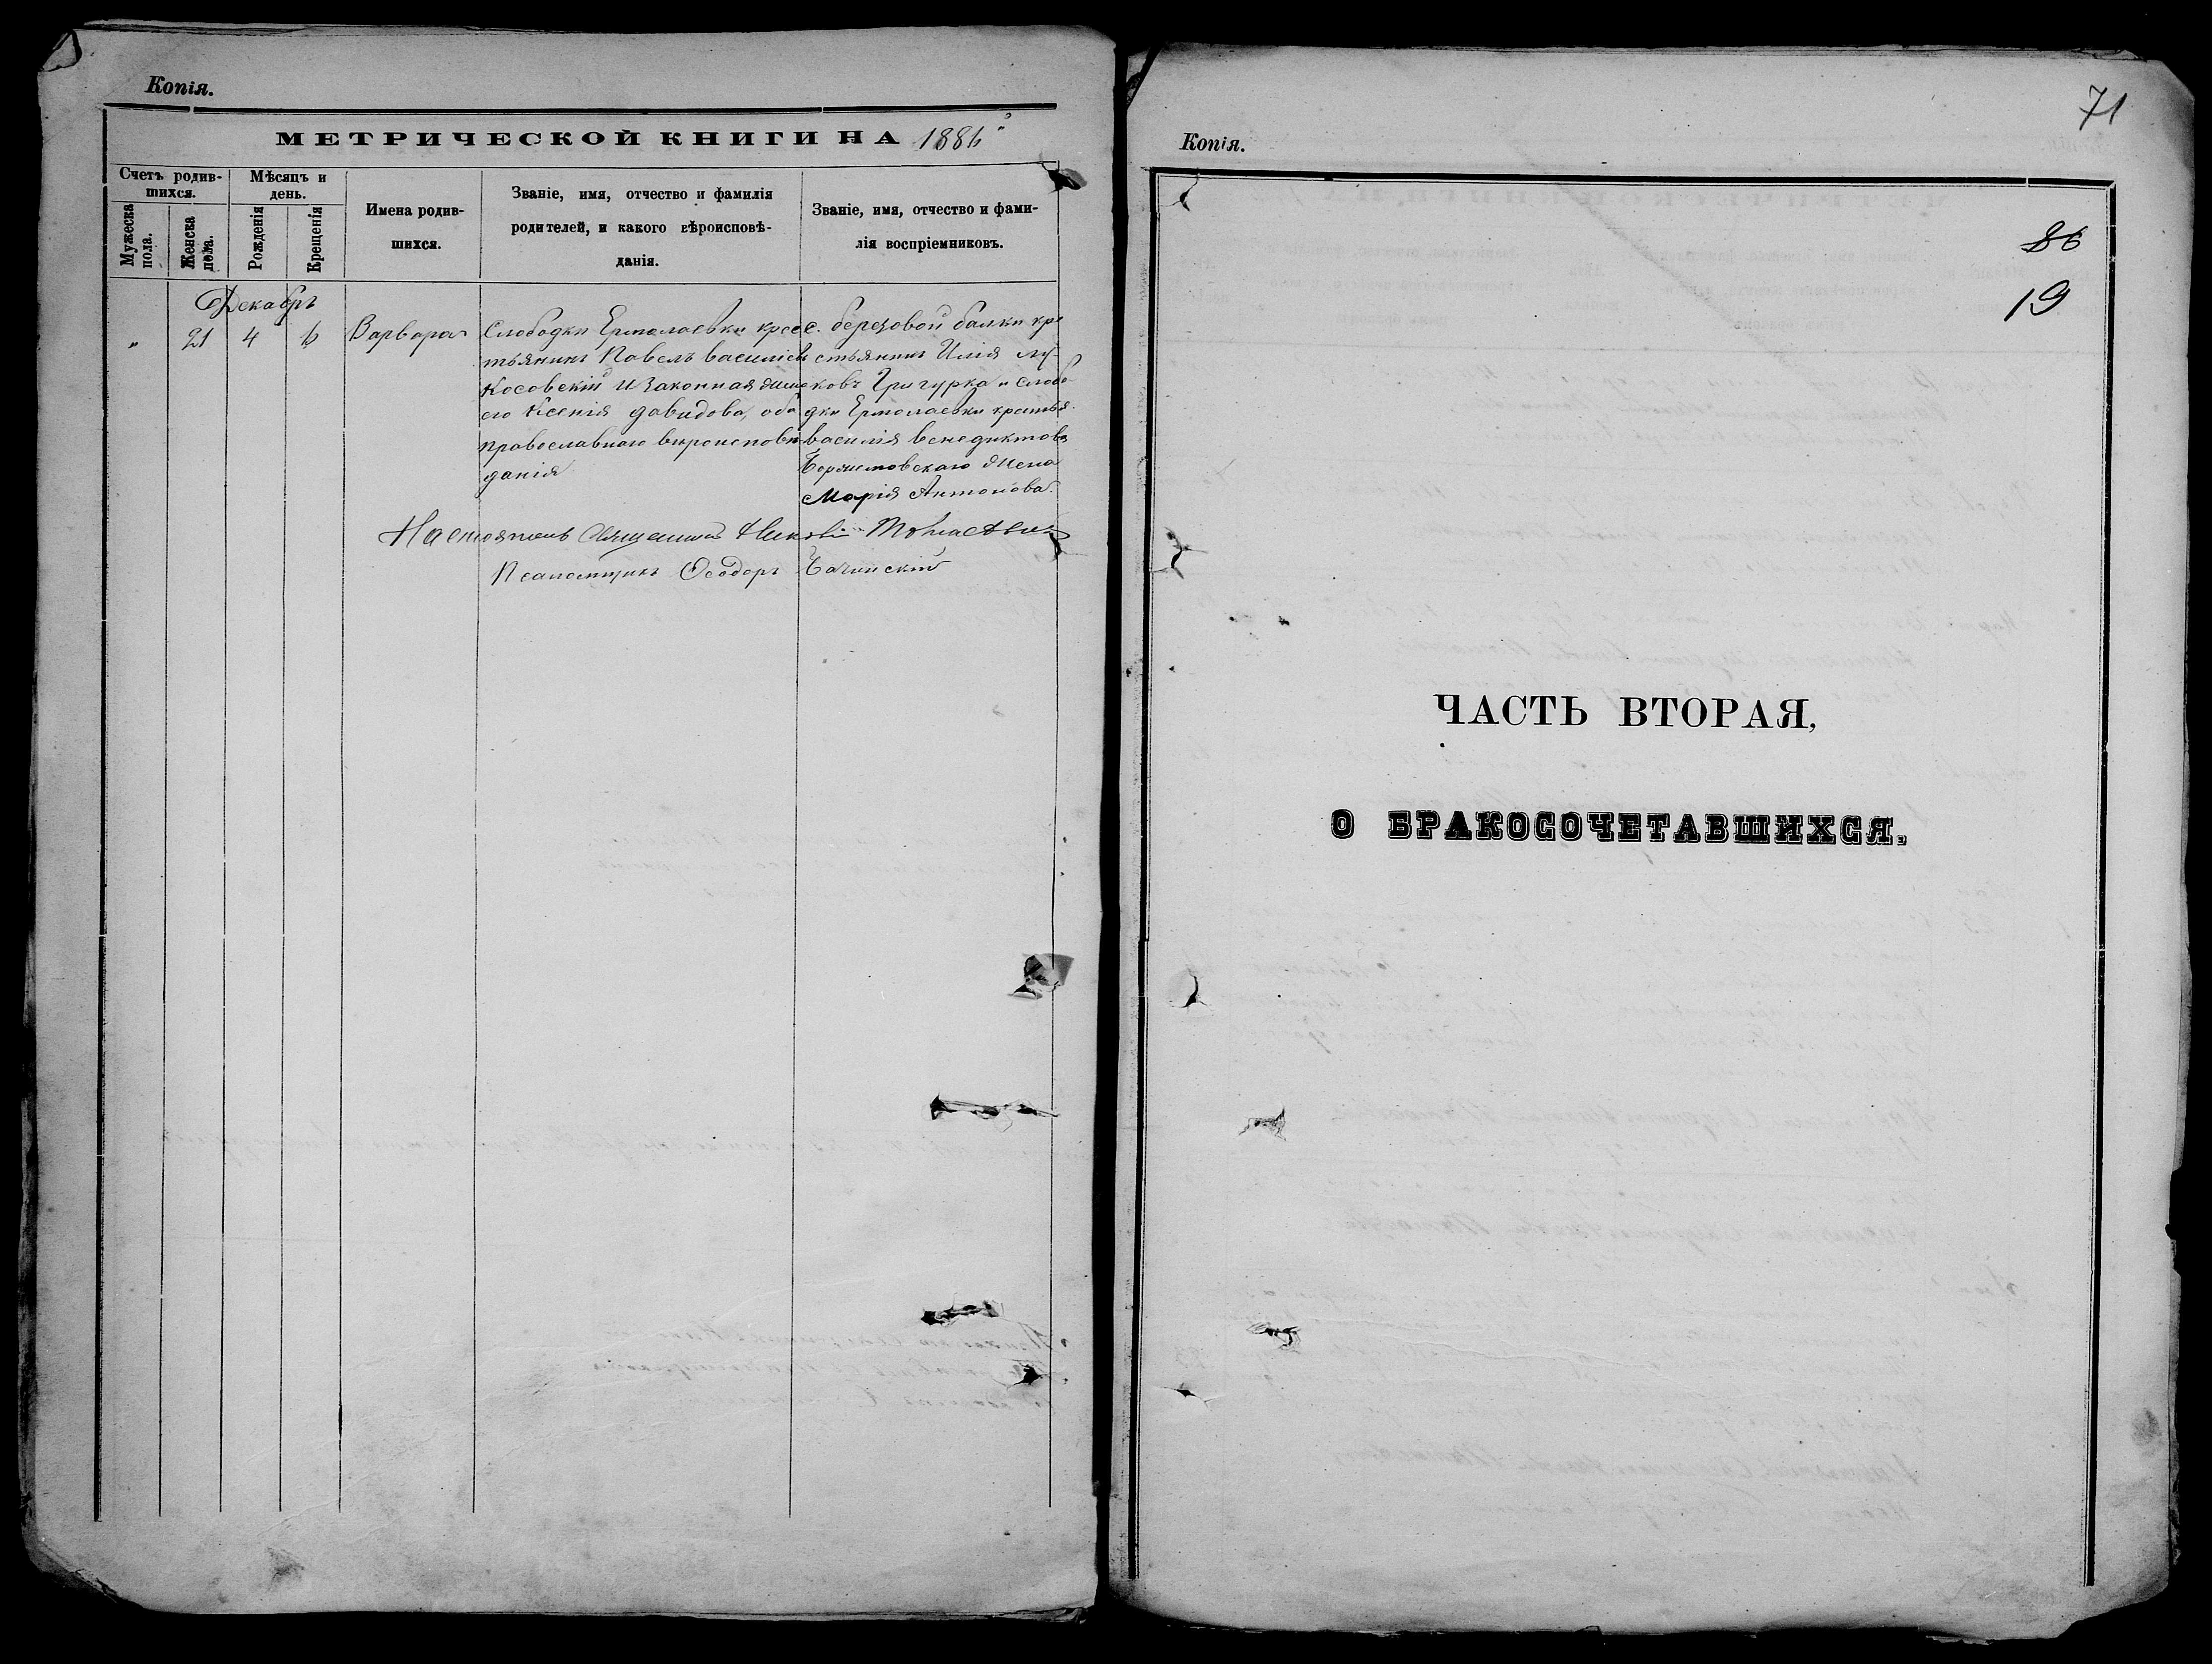 Копія.
МЕТРИЧЕСКОЙ КНИГИ НА 1886
Счетъ родив-
шихся.
Мѣсяцъ и
день.
Мужеска
пола.
Женска
пола.
Рожденія
Крещенія
Имена родив-
шихся.
Званіе, имя, отчество и фамилія
родителей, и какого вѣроисповѣ-
данія.
Званіе, имя, отчество и фами-
лія воспріемниковъ.
Декабрь
„ 21 4 6 Варвара
Слободки Ермолаевки крес
тьянинъ Павелъ Василіевъ
Косовскій и законная жена
его Ксенія Давидова, оба
православнаго вѣроисповѣ
данія
с. березовой балки кре
стьянинъ Илія
Григурко и слобо
дки Ермолаевки крестья.
Василія Венедиктова
жена
Марія Антонова.
Священникъ
Псаломщикъ Ѳеодоръ Бачинскій
71
Копія.
86
19
ЧАСТЬ ВТОРАЯ,
О БРАКОСОЧЕТАВШИХСЯ.